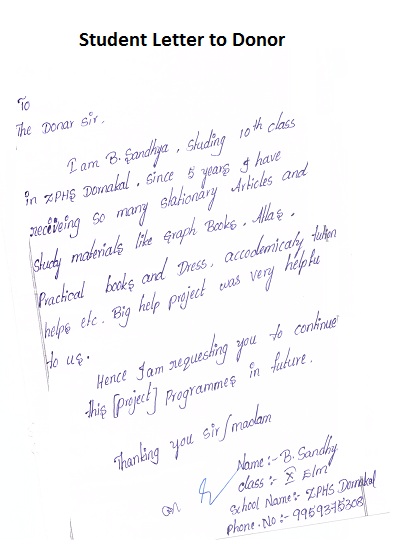 Student Letter to Donor
To
The Donar Sir.
I am B. Sandhya, studing 10th class
in ZPHS Dornakal. Since 5 years I have
receiveing so many stationary Articles and
Study materials like Graph Books, Atlas,
Practical books and Dress, accodemicaly tution
helps etc. Big help project was very helpfu
to us.
Hence I am requesting you to continue
this [project] Programmes in future.
Thanking you sir/madam
Name:- B. Sandhy
class:- X E/m
School Name:- ZPHS Dornakal
Phone. No:- 9959375308